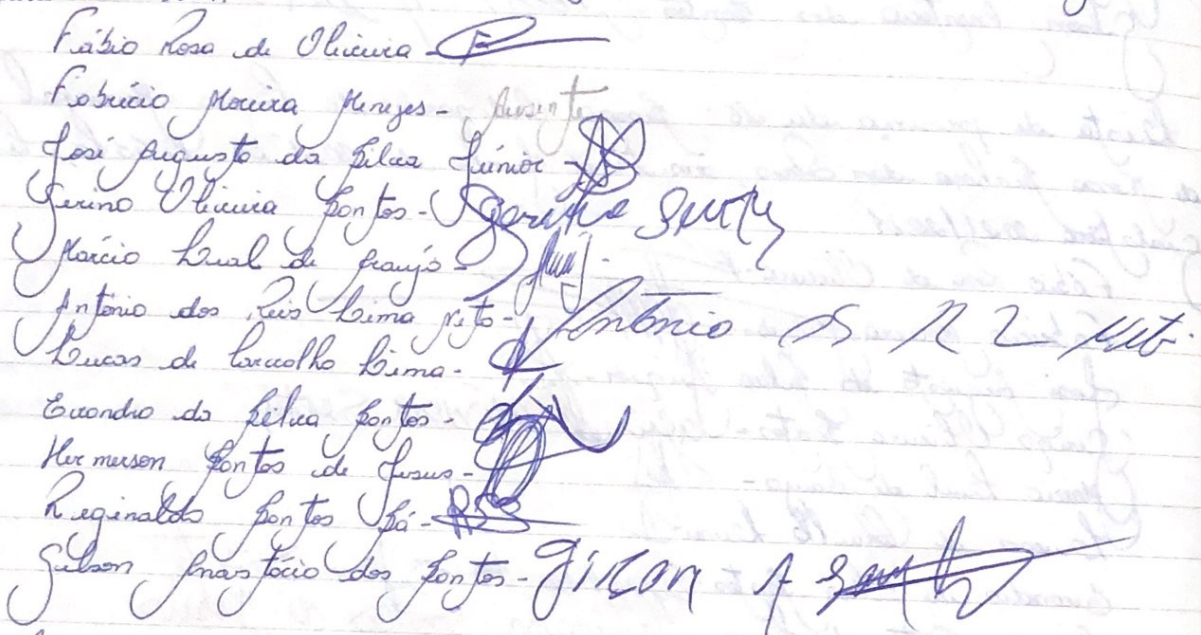 Fábio Rosa de Oliveira -
Fabrício Moreira Menezes - Ausente
José Augusto da Silva Júnior -
Gerino Oliveira Santos -
Márcio Leal de Araujo -
Antônio dos Reis Lima Neto - Antônio S R L Neto
Lucas de Carvalho Lima -
Evandro da Silva Santos -
Hermerson Santos de Jesus -
Reginaldo Santos Sá - RSS
Gilson Anastácio dos Santos - Gilson A Santos